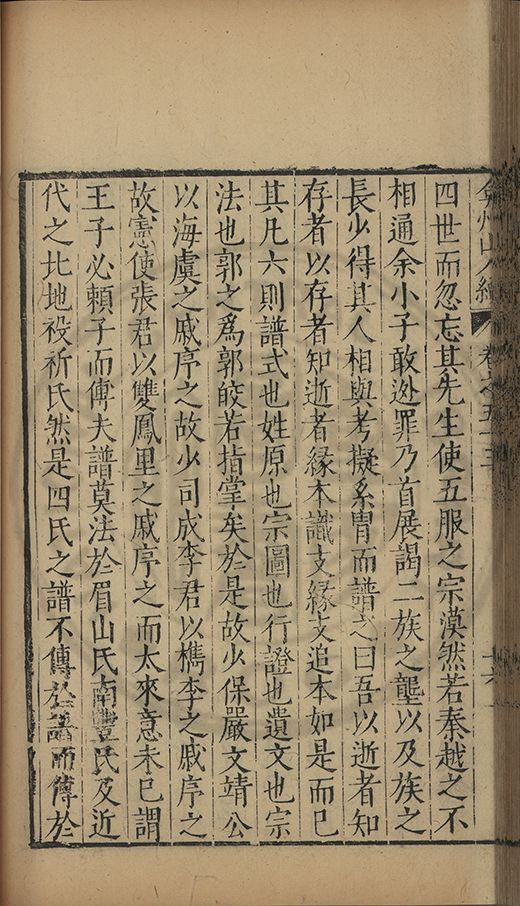 弇州山人續 卷之五十三 十六
四世而忽忘其先生使五服之宗漠然若秦越之不
相通余小子敢逃罪乃首展謁二族之壟以及族之
長少得其人相與考擬系胄而譜之曰吾以逝者知
存者以存者知逝者緣本識支緣支追本如是而已
其凡六則譜式也姓原也宗圖也行證也遺文也宗
法也郭之爲郭皎若指掌矣於是故少保嚴文靖公
以海虞之戚序之故少司成李君以檇李之戚序之
故憲使張君以雙鳳里之戚序之而太來意未已謂
王子必賴子而傳夫譜莫法於眉山氏南豐氏及近
代之北地祋祈氏然是四氏之譜不傳於譜而傳於